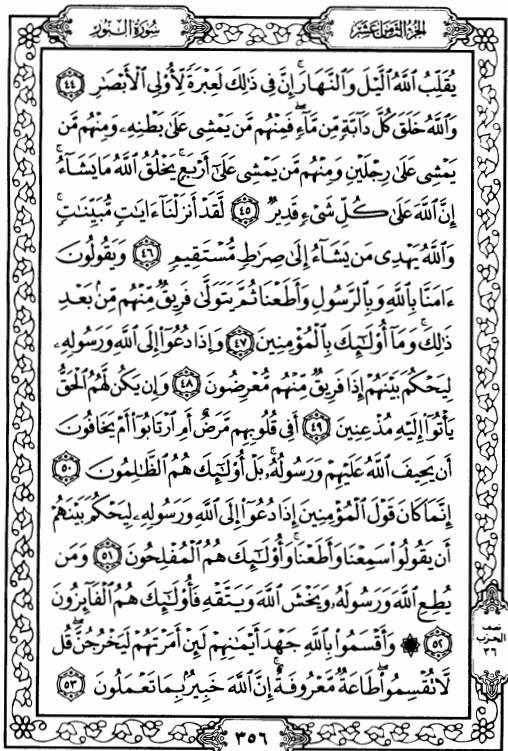 الجزء الثامن عشر
سورة النور
يُقَلِّبُ ٱللَّهُ ٱلَّيْلَ وَٱلنَّهَارَۚ إِنَّ فِى ذَٰلِكَ لَعِبْرَةً لِّأُو۟لِى ٱلْأَبْصَٰرِ ٤٤
وَٱللَّهُ خَلَقَ كُلَّ دَآبَّةٍ مِّن مَّآءٍۖ فَمِنْهُم مَّن يَمْشِى عَلَىٰ بَطْنِهِۦ وَمِنْهُم مَّن
يَمْشِى عَلَىٰ رِجْلَيْنِ وَمِنْهُم مَّن يَمْشِى عَلَىٰٓ أَرْبَعٍۚ يَخْلُقُ ٱللَّهُ مَا يَشَآءُۚ
إِنَّ ٱللَّهَ عَلَىٰ كُلِّ شَىْءٍ قَدِيرٌ ٤٥ لَّقَدْ أَنزَلْنَآ ءَايَٰتٍ مُّبَيِّنَٰتٍۚ
وَٱللَّهُ يَهْدِى مَن يَشَآءُ إِلَىٰ صِرَٰطٍ مُّسْتَقِيمٍ ٤٦ وَيَقُولُونَ
ءَامَنَّا بِٱللَّهِ وَبِٱلرَّسُولِ وَأَطَعْنَا ثُمَّ يَتَوَلَّىٰ فَرِيقٌ مِّنْهُم مِّنۢ بَعْدِ
ذَٰلِكَۚ وَمَآ أُو۟لَٰٓئِكَ بِٱلْمُؤْمِنِينَ ٤٧ وَإِذَا دُعُوٓا۟ إِلَى ٱللَّهِ وَرَسُولِهِۦ
لِيَحْكُمَ بَيْنَهُمْ إِذَا فَرِيقٌ مِّنْهُم مُّعْرِضُونَ ٤٨ وَإِن يَكُن لَّهُمُ ٱلْحَقُّ
يَأْتُوٓا۟ إِلَيْهِ مُذْعِنِينَ ٤٩ أَفِى قُلُوبِهِم مَّرَضٌ أَمِ ٱرْتَابُوٓا۟ أَمْ يَخَافُونَ
أَن يَحِيفَ ٱللَّهُ عَلَيْهِمْ وَرَسُولُهُۥۚ بَلْ أُو۟لَٰٓئِكَ هُمُ ٱلظَّٰلِمُونَ ٥٠
إِنَّمَا كَانَ قَوْلَ ٱلْمُؤْمِنِينَ إِذَا دُعُوٓا۟ إِلَى ٱللَّهِ وَرَسُولِهِۦ لِيَحْكُمَ بَيْنَهُمْ
أَن يَقُولُوا۟ سَمِعْنَا وَأَطَعْنَاۚ وَأُو۟لَٰٓئِكَ هُمُ ٱلْمُفْلِحُونَ ٥١ وَمَن
يُطِعِ ٱللَّهَ وَرَسُولَهُۥ وَيَخْشَ ٱللَّهَ وَيَتَّقْهِ فَأُو۟لَٰٓئِكَ هُمُ ٱلْفَآئِزُونَ
٥٢ ۞ وَأَقْسَمُوا۟ بِٱللَّهِ جَهْدَ أَيْمَٰنِهِمْ لَئِنْ أَمَرْتَهُمْ لَيَخْرُجُنَّۖ قُل
لَّا تُقْسِمُوا۟ۖ طَاعَةٌ مَّعْرُوفَةٌۚ إِنَّ ٱللَّهَ خَبِيرٌۢ بِمَا تَعْمَلُونَ ٥٣
نصف
الحزب
٣٦
٣٥٦